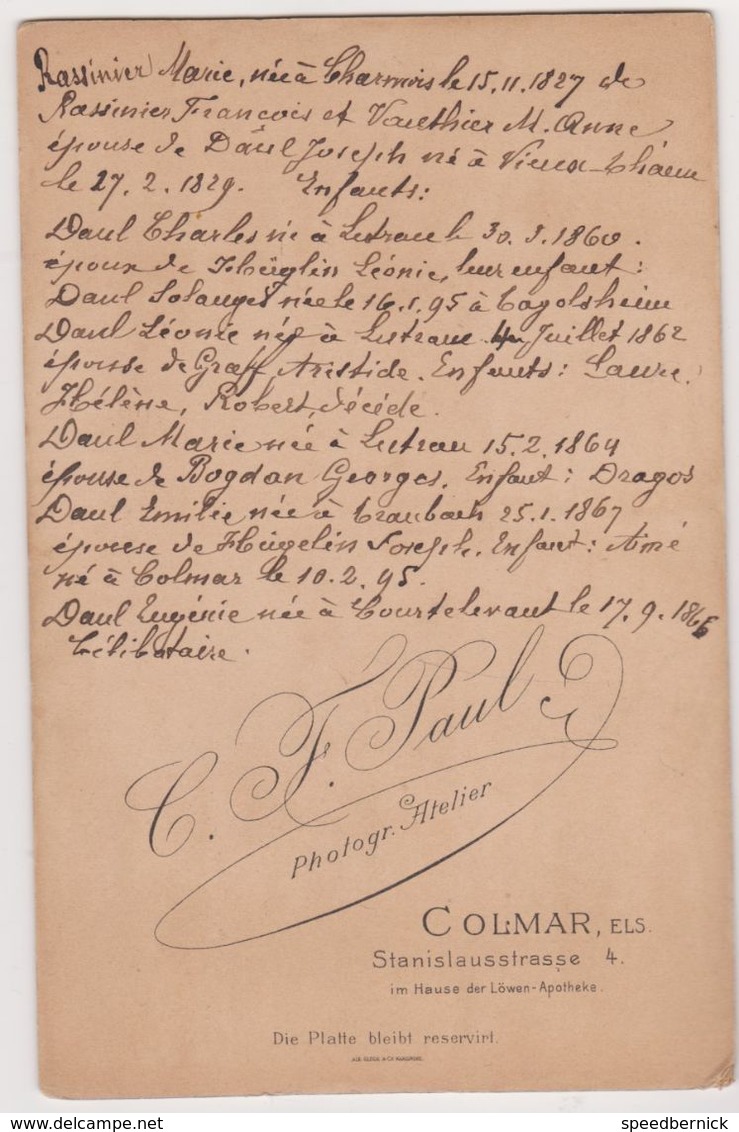 Rassinier Marie, née à Charmois le 15.11.1827 de
Rassinier François et Vauthier M. Anne
épouse de Daul Joseph né à Vieux-Thann
le 27.2.1829. Enfants:
Daul Charles né à Lutran le 30.3.1860.
époux de Hüglin Léonie, leur enfant:
Daul Solanges née le 16.1.95 à Tagolsheim
Daul Léonie née à Lutran 4 Juillet 1862
épouse de Graff Aristide. Enfants: Laure,
Hélène, Robert, décédé.
Daul Marie née à Lutran 15.2.1864
épouse de Bogdan Georges. Enfant: Dragos
Daul Emilie née à Traubach 25.1.1867
épouse de Hügelin Joseph. Enfant: Aimé
né à Colmar le 10.2.95.
Daul Eugénie née à Courtelevant le 17.9.186
Célibataire.
C. F. Paul
Photogr. Atelier
COLMAR, ELS.
Stanislausstrasse 4.
im Hause der Löwen-Apotheke.
Die Platte bleibt reservirt.
speedbernick